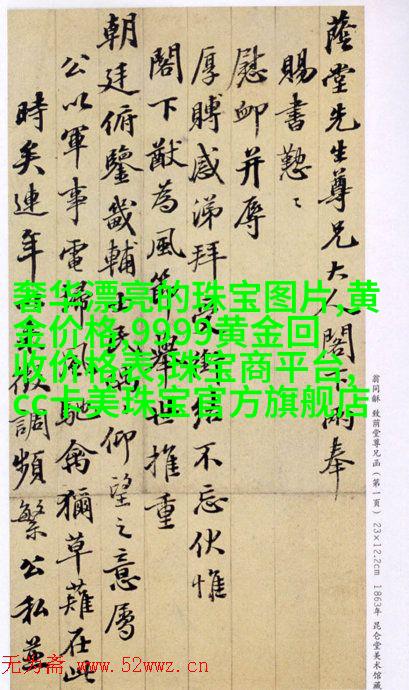 蔭堂先生尊兄大人閣下兩奉
賜書懃〻
慰卹并辱
厚賻感涕拜結不忘伏惟
閣下猷為風節舉世推重
朝廷俯鑒畿輔士民仰望之意屬
公以軍事電掃風馳禽獮草薙在此
時矣連年調頻繁公私並
奢华漂亮的珠宝图片,黄
金价格,9999黄金回
收价格表,珠宝商平台,
cc卡美珠宝官方旗舰店
翁同龢 致荫堂尊兄函（第一页） 23×12.2cm 1863年 昆仑堂美术馆藏
无为斋 www.52wwz.cn